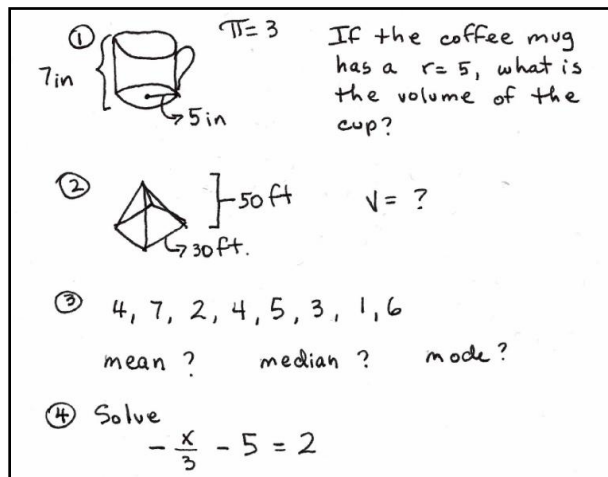 ① π = 3 If the coffee mug
7in has a r= 5, what is
the volume of the
5 in cup?
② 50 ft V = ?
30ft.
③ 4, 7, 2, 4, 5, 3, 1, 6
mean ? median ? mode ?
④ Solve
- x/3 - 5 = 2